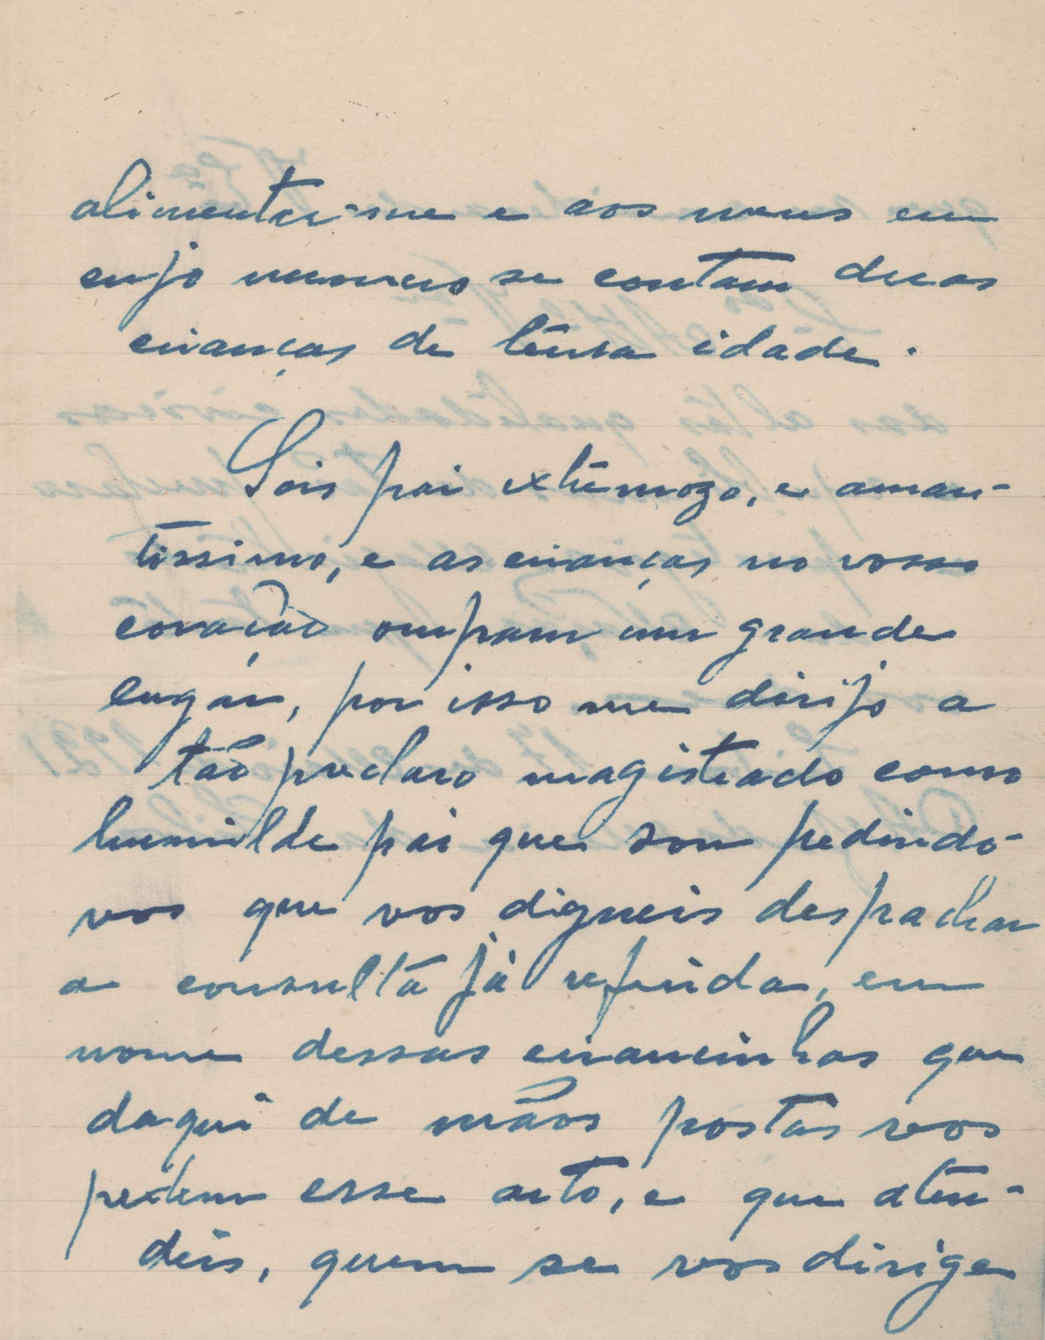 alimentar-me e aos meus em
cujo numero se contam duas
crianças de tenra idade.
Sois pai extremozo, e aman-
tissimo, e as crianças no vosso
coração ocupam um grande
lugar, por isso me dirijo a
tão preclaro magistrado como
humilde pai que sou pedindo-
vos que vos digneis despachar
a consulta já referida, em
nome dessas criancinhas que
daqui de mãos postas vos
pedem esse acto, e que aten-
deis, quem se vos dirige